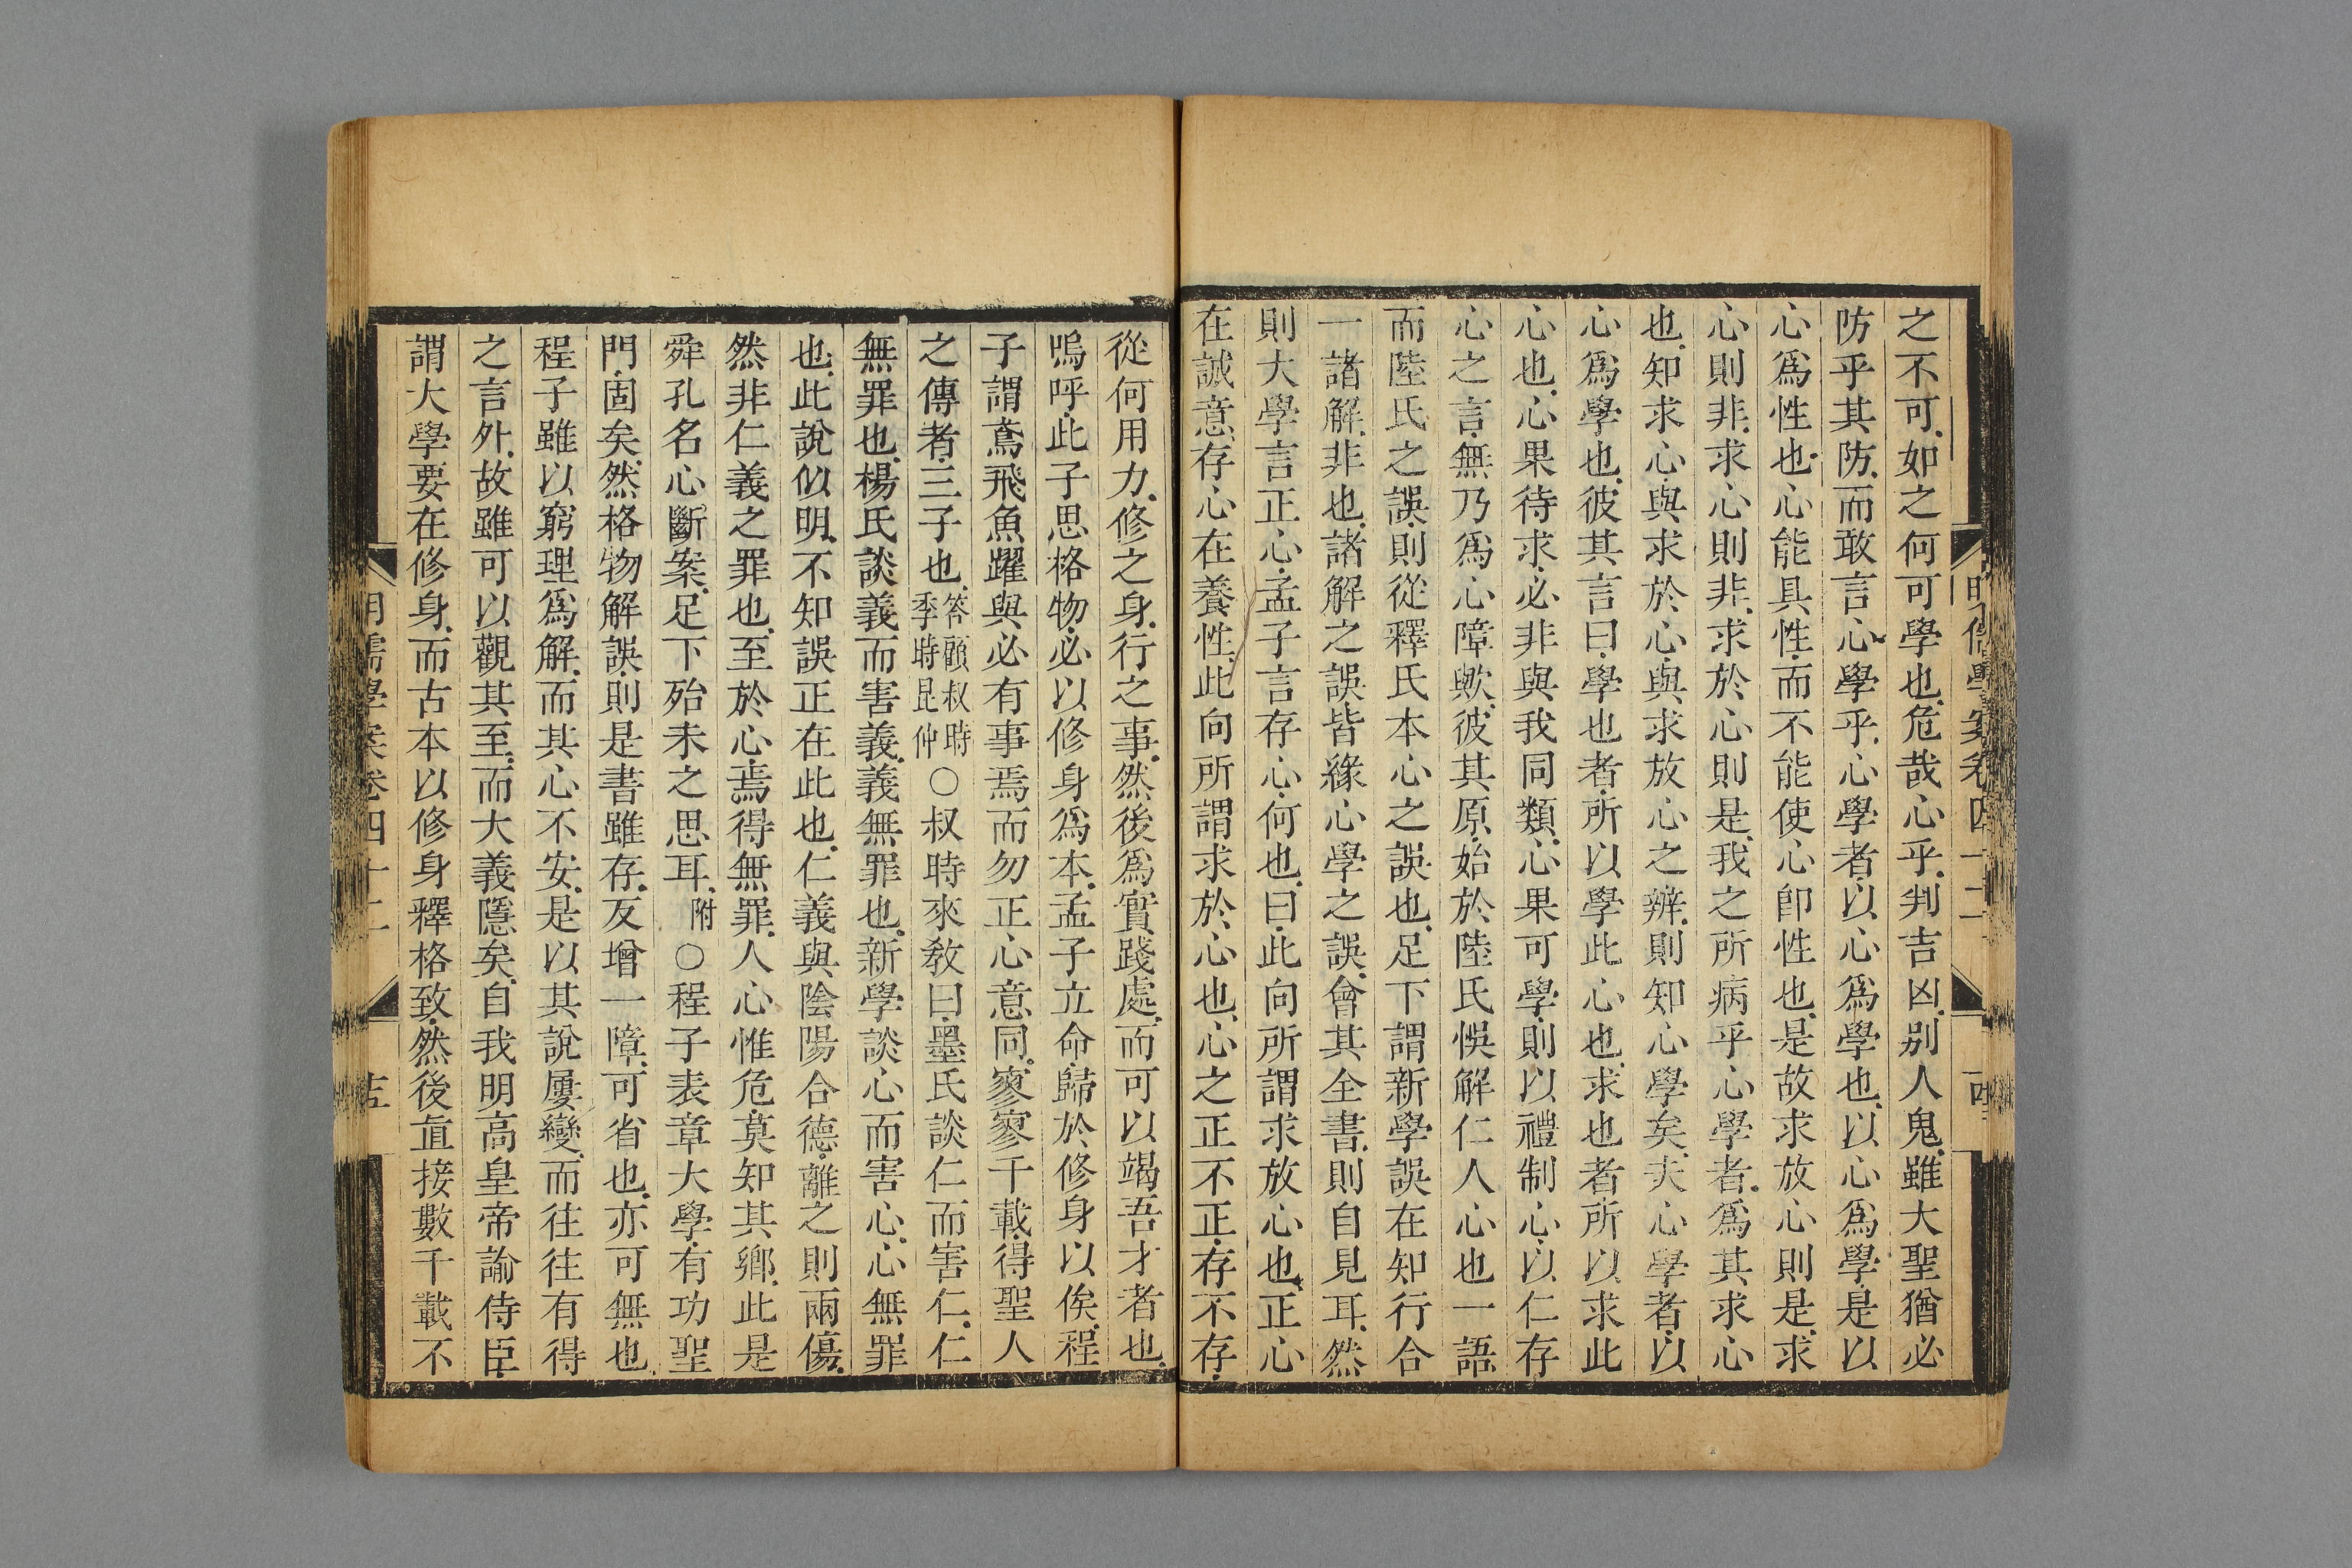 之不可如之何可學也危哉心乎判吉凶別人鬼雖大聖猶必
防乎其防而敢言心學乎心學者以心爲學也以心爲學是以
心爲性也心能具性而不能使心卽性也是故求放心則是求
心則非求心則非求於心則是我之所病乎心學者爲其求心
也知求心與求於心與求放心之辨則知心學矣夫心學者以
心爲學也彼其言曰學也者所以學此心也求也者所以求此
心也心果待求必非與我同類心果可學則以禮制心以仁存
心之言無乃爲心障歟彼其原始於陸氏悞解仁人心也一語
而陸氏之誤則從釋氏本心之誤也足下謂新學誤在知行合
一諸解非也諸解之誤皆緣心學之誤會其全書則自見耳然
則大學言正心孟子言存心何也曰此向所謂求放心也正心
在誠意存心在養性此向所謂求於心也心之正不正存不存
從何用力修之身行之事然後爲實踐處而可以竭吾才者也
嗚呼此子思格物必以修身爲本孟子立命歸於修身以俟程
子謂鳶飛魚躍與必有事焉而勿正心意同寥寥千載得聖人
之傳者三子也答顧叔時季時昆仲○叔時來敎曰墨氏談仁而害仁仁
無罪也楊氏談義而害義義無罪也新學談心而害心心無罪
也此說似明不知誤正在此也仁義與陰陽合德離之則兩傷
然非仁義之罪也至於心焉得無罪人心惟危莫知其鄉此是
舜孔名心斷案足下殆未之思耳附○程子表章大學有功聖
門固矣然格物解誤則是書雖存反增一障可省也亦可無也
程子雖以窮理爲解而其心不安是以其說屢變而往往有得
之言外故雖可以觀其至而大義隱矣自我明高皇帝諭侍臣
謂大學要在修身而古本以修身釋格致然後直接數千載不
明儒學案卷四十二